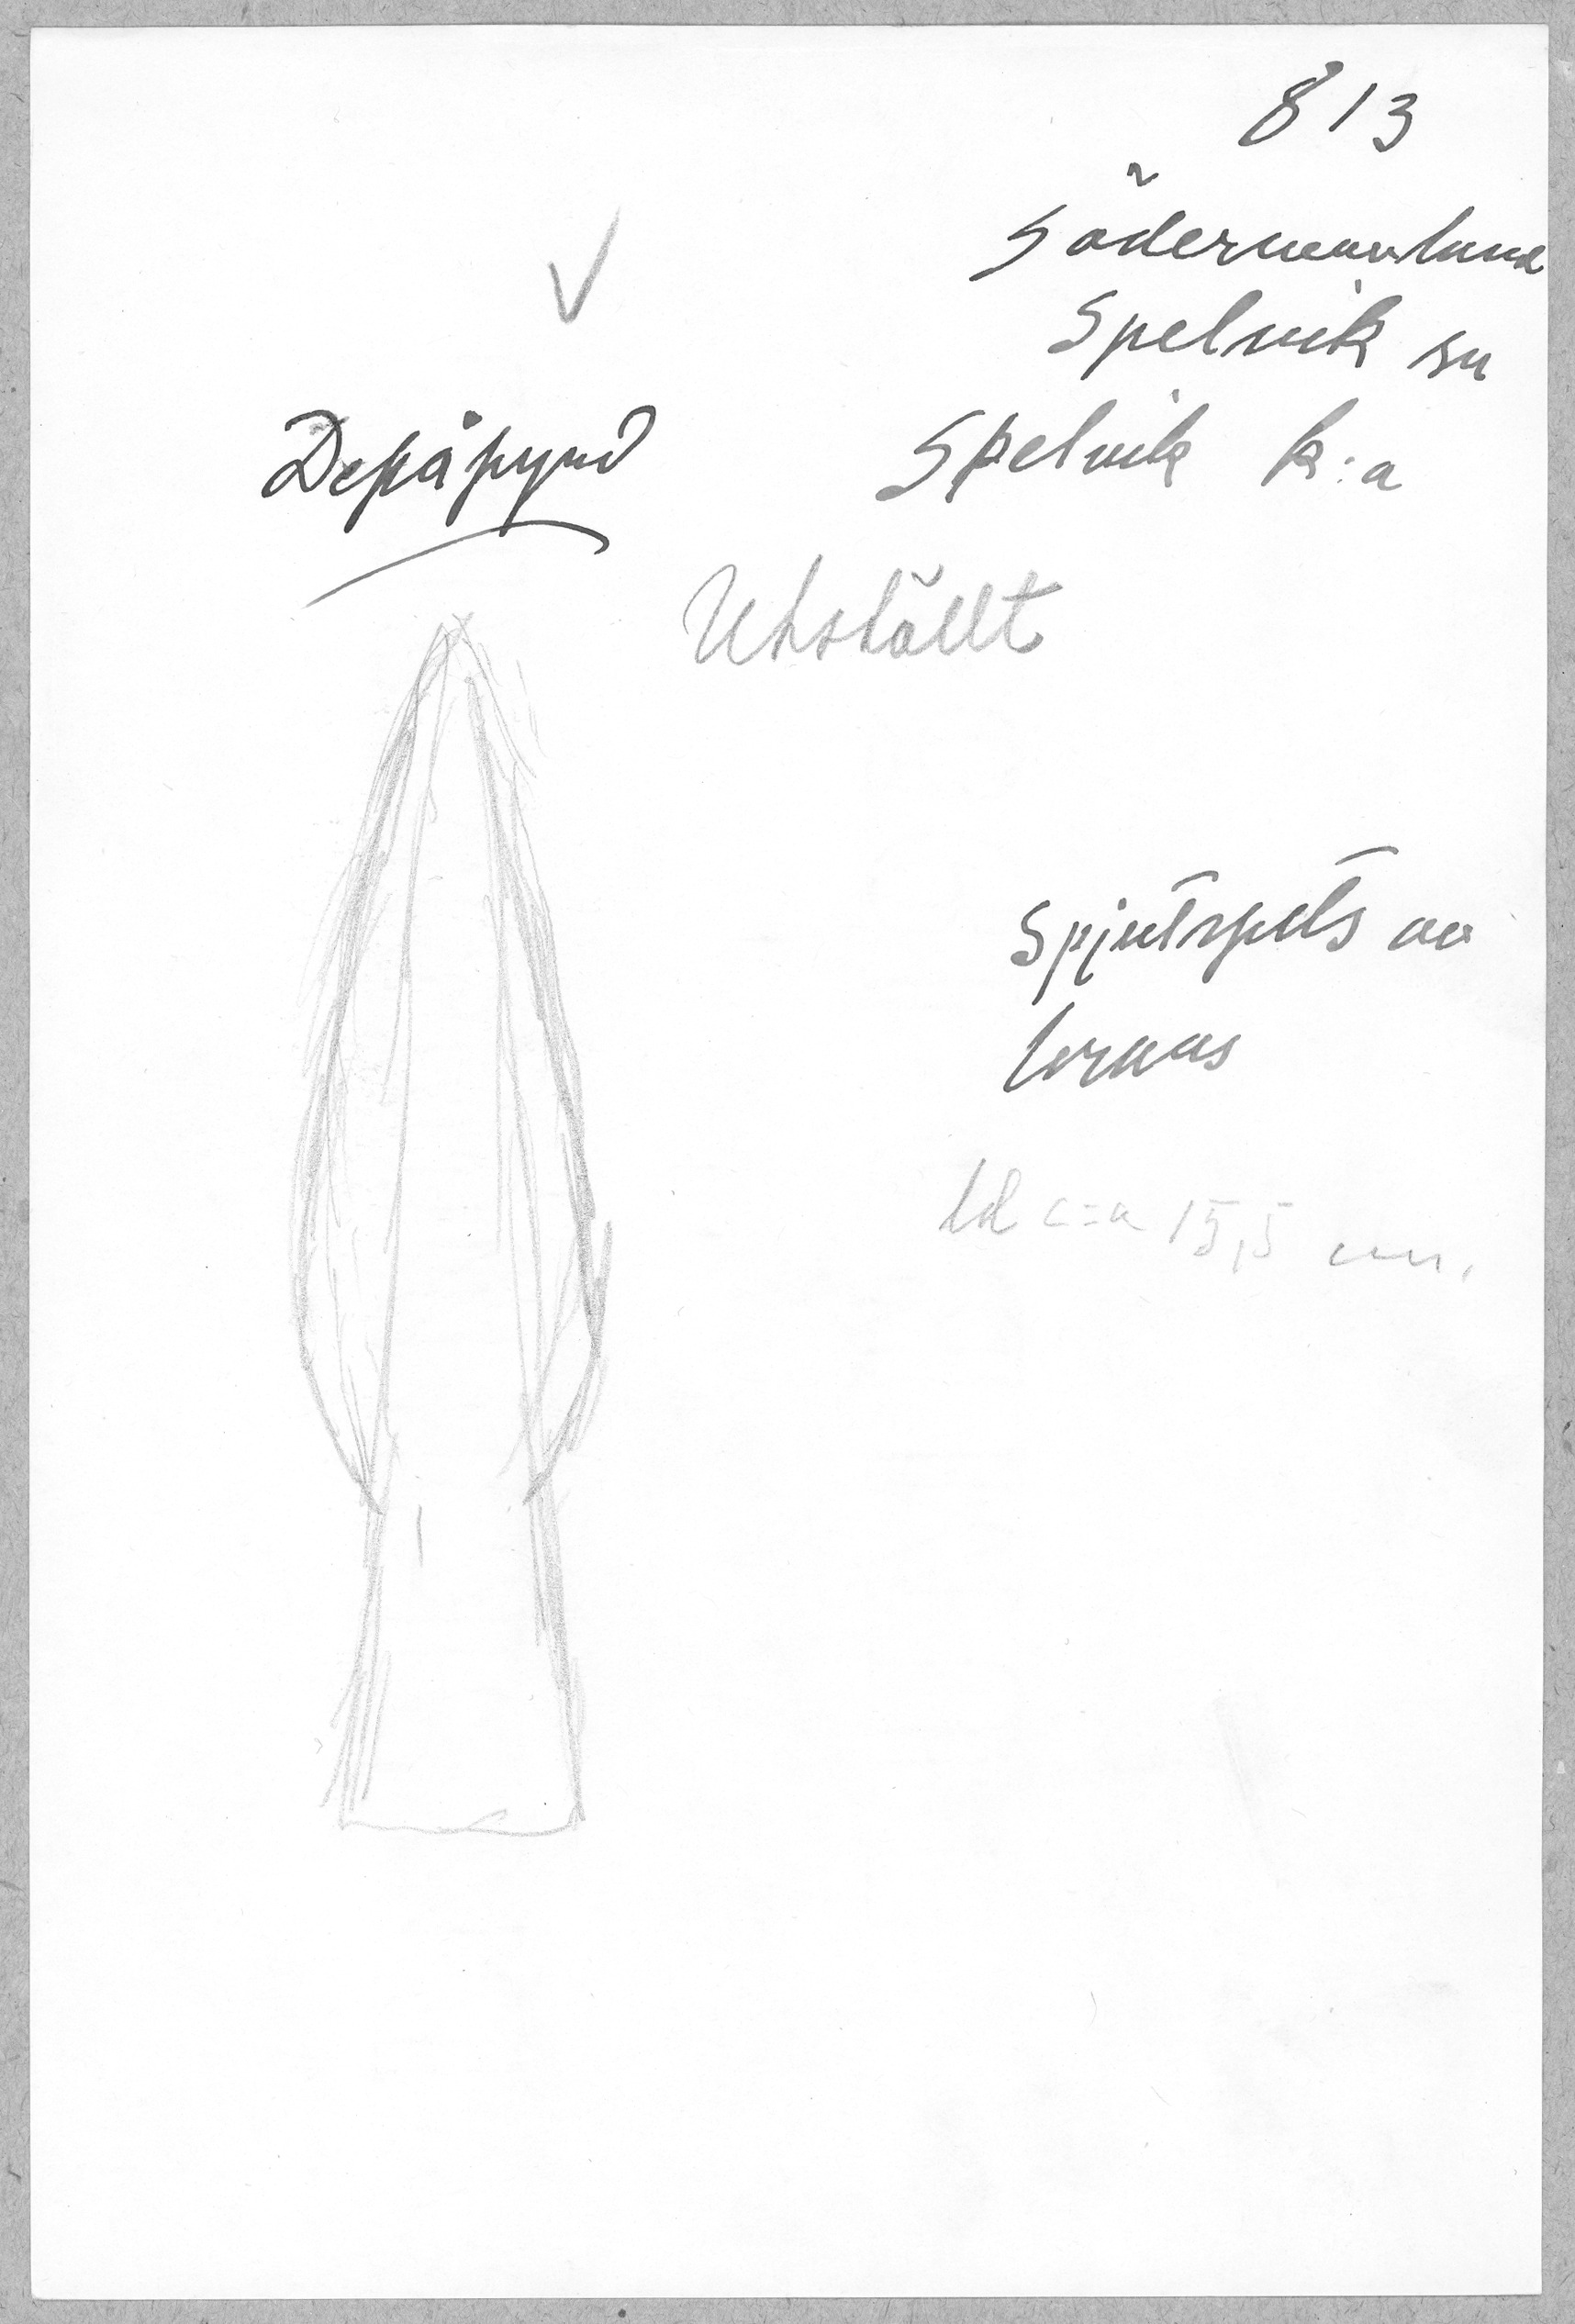 813
Södermanland
Spelvik sn
Depåfynd
Spelvik k:a
Utställt
Spjutspets av
brons
Ld c:a 15,5 cm.